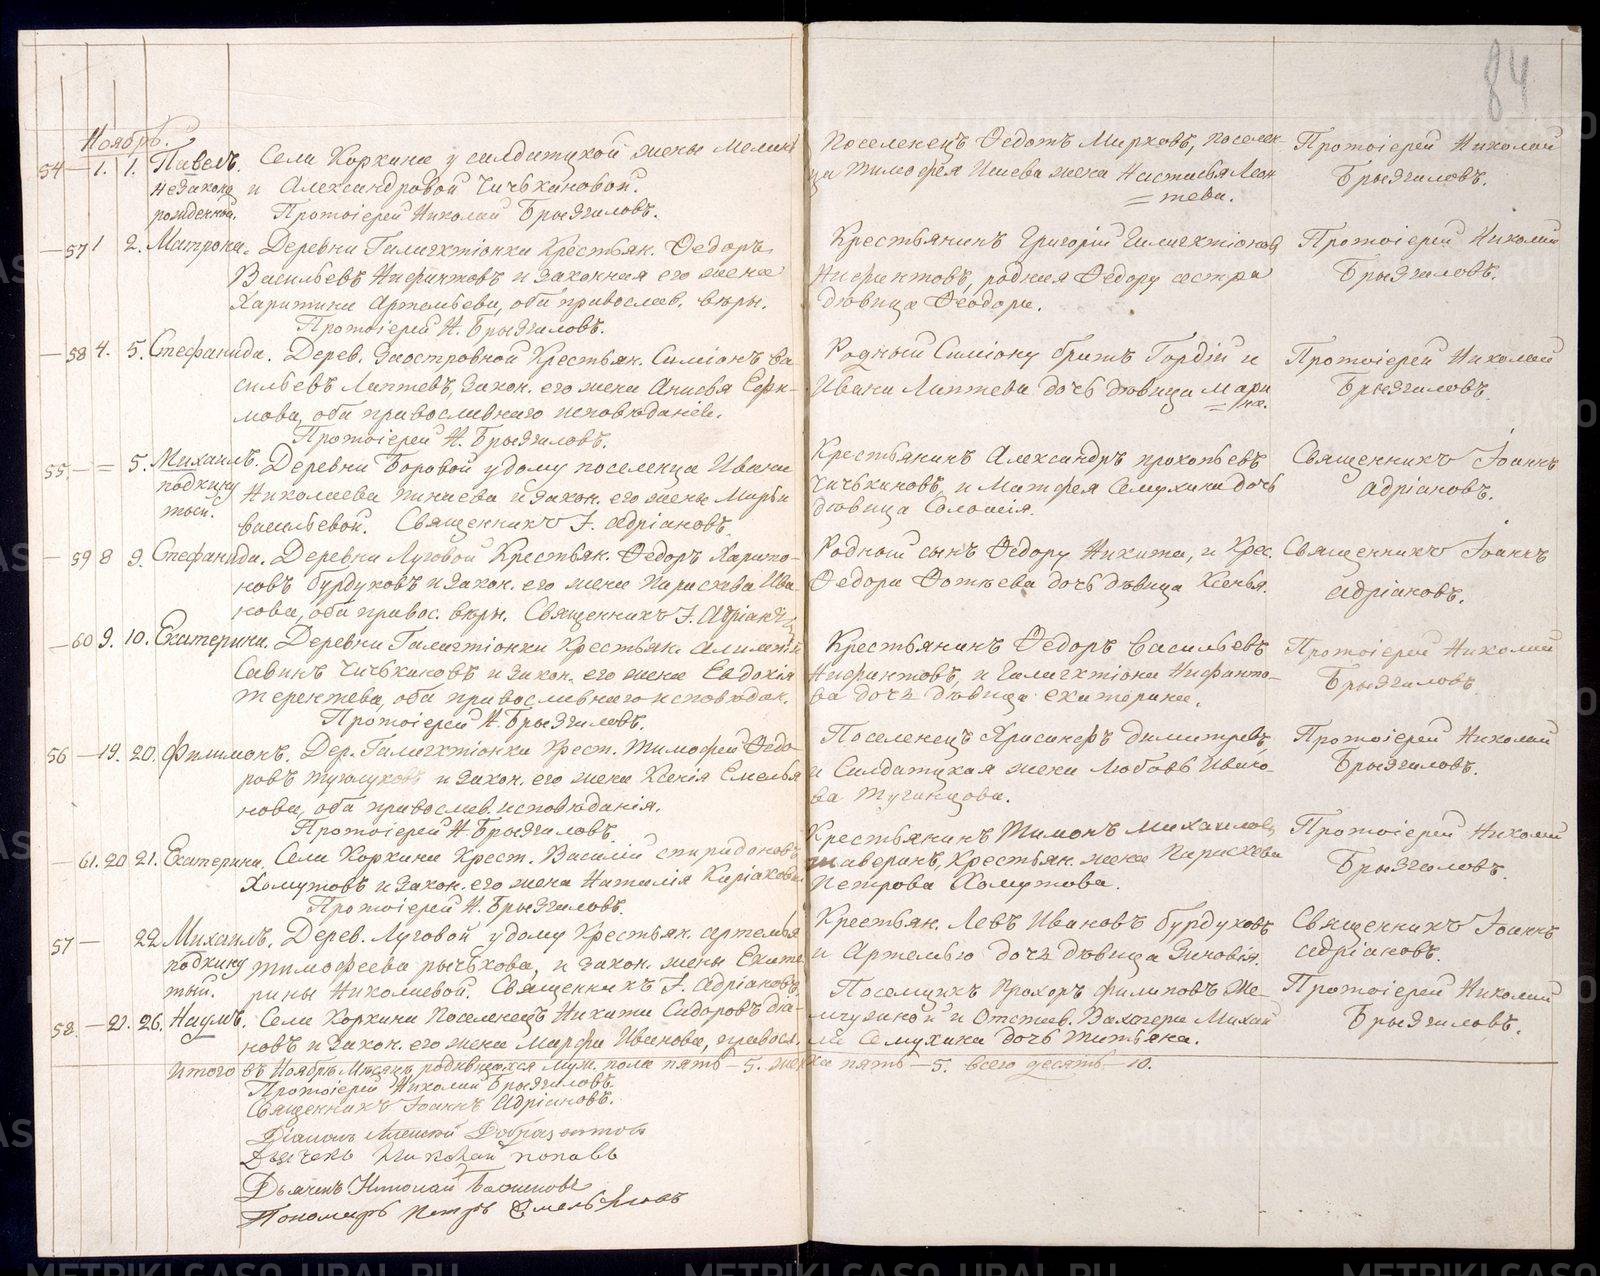 84
Ноябрь.
54 — 1. 1. Павелъ. Села Коркина у солдатской жены Мелан
незаконо и Александровой Чичькановой.
рожденной. Протоіерей Николай Брызгаловъ.
Поселенецъ Ѳедотъ Мирковъ, поселен-
ца Тимофея жена Настасья Леон
= тева.
Протоіерей Николай
Брызгаловъ.
— 57 1 2. Матрона. Деревни Галактіонки Крестьян. Ѳедоръ
Васильевъ Нифантовъ и законная его жена
Харитина Артемьева, оба православ. вѣры.
Протоіерей Н. Брызгаловъ.
Крестьянинъ Григорій Галактіоновъ
Нифантовъ, родная Ѳедору сестра
дѣвица Ѳеодора.
Протоіерей Николай
Брызгаловъ.
— 58 4. 5. Стефанида. Дерев. Заостровной Крестьян. Симіонъ Ва
сильевъ Лаптевъ, закон. его жена Анисья Ефи-
мова, оба православнаго исповѣданія.
Протоіерей Н. Брызгаловъ.
Родный Симіону братъ Гордій и
Ивана Лаптева дочь дѣвица Мари
= на.
Протоіерей Николай
Брызгаловъ.
55. — = 5. Михаилъ. Деревни Боровой у дому поселенца Ивана
подкину Николаева и закон. его жены Марьи
той. Васильевой. Священникъ І. Адріановъ.
Крестьянинъ Александръ Прокопьевъ
Чичькановъ, и Матфея Семухина дочь
дѣвица Соломія.
Священникъ Іоаннъ
Адріановъ.
— 59 8 9. Стефанида. Деревни Луговой Крестьян. Ѳедоръ Харито-
новъ Бурдуковъ и закон. его жена Параскева Ива
нова, оба правос. вѣры. Священникъ І. Адріановъ
Родный сынъ Ѳедору Никита, и Крес.
Ѳедора Фотѣева дочь дѣвица Ксенья.
Священникъ Іоаннъ
Адріановъ.
— 60 9. 10. Екатерина. Деревни Галактіонки Крестьян.
Савинъ Чичькановъ и закон. его жена Евдокія
Терентева, оба православнаго исповѣдан.
Протоіерей Н. Брызгаловъ.
Крестьянинъ Ѳедоръ Васильевъ
Нифантовъ, и Галактіона Нифанто-
ва дочь дѣвица Екатерина.
Протоіерей Николай
Брызгаловъ
56 — 19. 20. Филимонъ. Дер. Галактіонки Крест. Тимофей Ѳедо-
ровъ и закон. его жена Ксенія Емелья
нова, оба православ. исповѣданія.
Протоіерей Н. Брызгаловъ.
Поселенецъ Хрисанфъ Димитревъ,
и Солдатская жена Любовь Ивано-
ва
Протоіерей Николай
Брызгаловъ.
— 61. 20 21. Екатерина. Села Коркина Крест. Василій Спиридоновъ
Хомутовъ и закон. его жена Наталія Киріакова
Протоіерей Н. Брызгаловъ.
Крестьянинъ Тимонъ Михаиловъ
Крестьян. жена Параскева
Петрова Хомутова.
Протоіерей Николай
Брызгаловъ.
57 — 22 Михаилъ. Дерев. Луговой у дому Крестьян. Артемья
подкину Тимофеева Рычькова, и закон. жены Екате
тый. рины Николаевой. Священникъ І. Адріановъ.
Крестьян. Левъ Ивановъ Бурдуковъ
и Артемью дочь дѣвица Зиновія.
Священникъ Іоаннъ
Адріановъ.
58. — 21. 26. Наумъ. Села Коркина Поселенецъ Никита Сидоровъ
новъ и закон. его жена Марфа Иванова, правосл.
Поселщикъ Прохоръ Филиповъ Же-
мчугиной и Отстав. Вахтера Михаи
ла Семухина дочь Татьяна.
Протоіерей Николай
Брызгаловъ.
Итого въ Ноябрѣ Мѣсяцѣ родившихся муж. пола пять — 5. женска пять — 5. всего десять — 10.
Протоіерей Николай Брызгаловъ.
Священникъ Іоаннъ Адріановъ.
Діаконъ Алексѣй
Дьячекъ Николай Поповъ
Дьячекъ Николай
Пономарь Петръ Емельяновъ
METRIKI.CASO-URAL.RU